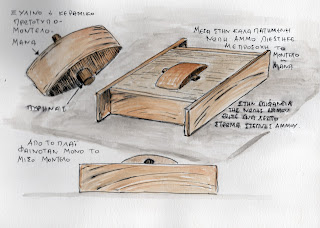 ΞΥΛΙΝΟ ή ΚΕΡΑΜΙΚΟ
ΠΡΩΤΟΤΥΠΟ-
ΜΟΝΤΕΛΟ-
ΜΑΝΑ
ΠΥΡΗΝΑΣ
ΜΕΣΑ ΣΤΗΝ ΚΑΛΑ ΠΑΤΗΜΕΝΗ
ΝΩΠΗ ΑΜΜΟ ΠΙΕΣΤΗΚΕ
ΜΕ ΠΡΟΣΟΧΗ ΤΟ
ΜΟΝΤΕΛΟ
-ΜΑΝΑ
ΣΤΗΝ ΕΠΙΦΑΝΕΙΑ
ΤΗΣ ΝΩΠΗΣ ΑΜΜΟΥ
ΕΝΑ ΛΕΠΤΟ
ΣΤΡΩΜΑ ΣΤΕΓΝΗΣ ΑΜΜΟΥ.
ΑΠΟ ΤΟ ΠΛΑΪ
ΦΑΙΝΟΤΑΝ ΜΟΝΟ ΤΟ
ΜΙΣΟ ΜΟΝΤΕΛΟ